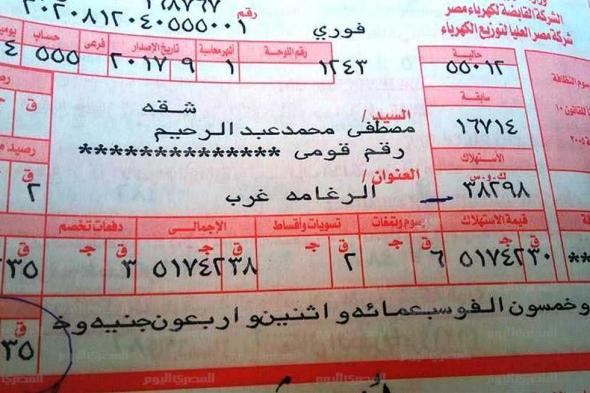 الشركة القابضة لكهرباء مصر
شركة مصر العليا لتوزيع الكهرباء
رقم
٢٠٢٠٨١٢٠٤٠٥٥٥٠٠١
فوري
حالية
رقم اللوحة
أشهر محاسبة
تاريخ الإصدار
فرعى
حساب
٥٥٠١٢
١٢٤٣
١
٩
٢٠١٧
٥٥٥
سابقة
١٦٧١٤
شقه
السيد/
مصطفى محمد عبد الرحيم
رقم قومى **************
الاستهلاك
ك.و.س
٣٨٢٩٨
العنوان/
الرغامه غرب
قيمة الاستهلاك
رسوم وتمغات
تسويات وأقساط
الإجمالى
دفعات تخصم
ق
ج
ق
ج
ق
ج
ق
ج
ق
ج
٥١٧٤٢٣٠
٦
٢
٥١٧٤٢٣٨
٣
٣٥
وخمسون الف وسبعمائه و اثنين و اربعون جنيه و خ
ق
٣٥
المصري اليوم